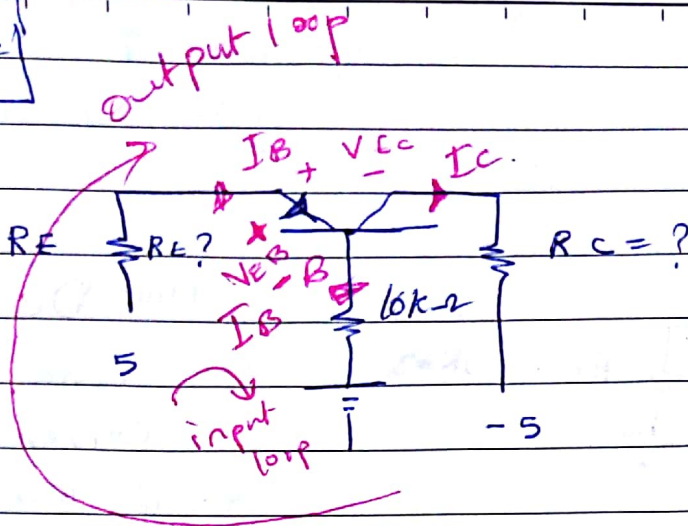 output loop
IB + VEC - IC.
RE RE? VEB - B 10k Ω RC = ?
IB
5
input
loop
- 5